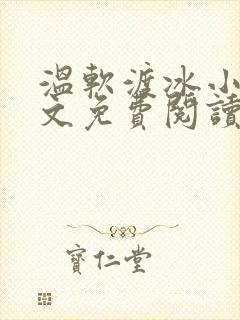 溫軟渡冰小
文免費閱讀
寶仁堂